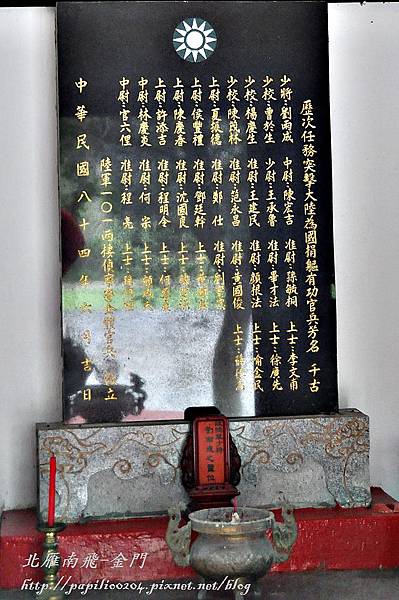 歷次任務突擊大陸為國捐軀有功官兵芳名 千古
少將：劉雨成 中尉：陳宏吉 准尉：孫毓桐 上士：李文甫
少校：曹於生 少尉：王承魯 准尉：畢才法 上士：徐廣先
少校：楊慶生 准尉：王建民 准尉：顏振法 上士：俞金民
少校：陳茂林 准尉：范永昌 准尉：黃國俊 上士
上尉：夏振德 准尉：鄭仕 准尉：劉
上尉：侯豐禮 准尉：鄧廷幹 上士
上尉：陳慶春 准尉：沈國良 上士
上尉：許添吉 准尉：程明全 上士
中尉：林慶炎 准尉：何宗 上士
中尉：官六俚 准尉：程亮 上士
陸軍一〇一兩棲偵察營全體官兵 立
中華民國八十四年六月吉日
劉雨成之靈位
北雁南飛-金門
http://papilio0204.pixnet.net/blog